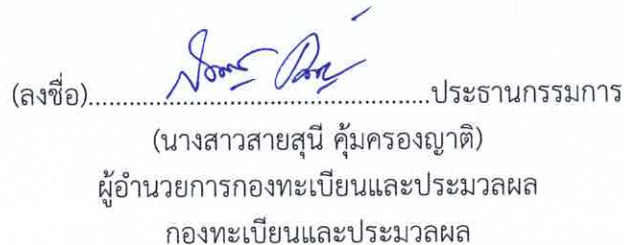 (ลงชื่อ)..................................................ประธานกรรมการ
(นางสาวสายสุนี คุ้มครองญาติ)
ผู้อำนวยการกองทะเบียนและประมวลผล
กองทะเบียนและประมวลผล